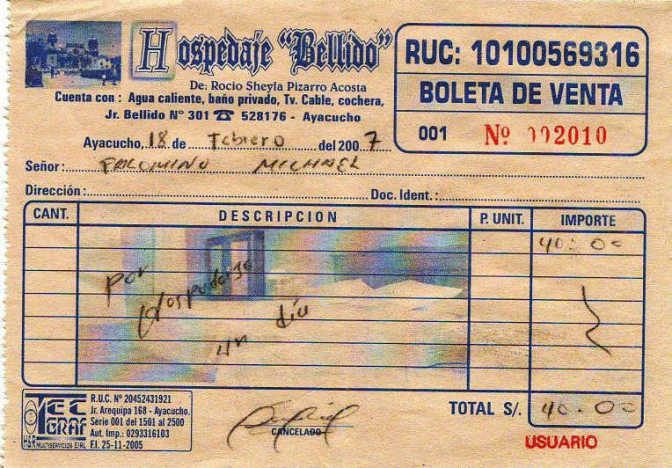 Hospedaje "Bellido"
De: Rocio Sheyla Pizarro Acosta
Cuenta con : Agua caliente, baño privado, Tv. Cable, cochera,
Jr. Bellido Nº 301 ☎ 528176 - Ayacucho
RUC: 10100569316
BOLETA DE VENTA
001 Nº 002010
Ayacucho, 18 de Febrero del 2007
Señor: PALOMINO MICHAEL
Dirección: Doc. Ident.:
CANT. DESCRIPCION P. UNIT. IMPORTE
40.00
por
Hospedaje
un día
R.U.C. Nº 20452431921
Jr. Arequipa 168 - Ayacucho.
Serie 001 del 1501 al 2500
Aut. Imp.: 0293316103
F.I. 25-11-2005
GRAF
MULTISERVICIOS EIRL
CANCELADO
TOTAL S/. 40.00
USUARIO